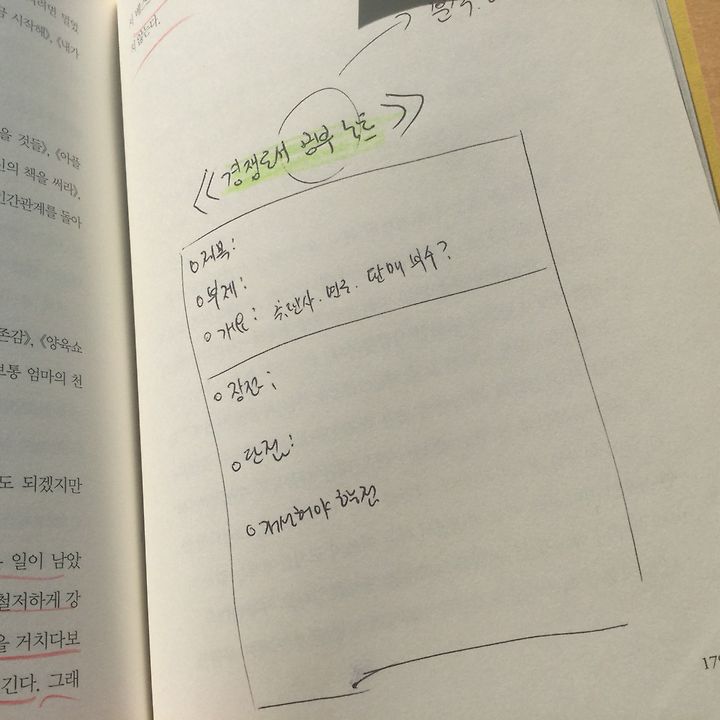 려면 멀었
시작해》, 《내가
을 것들》, 《아플
신의 책을 써라》,
인간관계를 돌아
존감》, 《양육쇼
보통 엄마의 천
도 되겠지만
일이 남았
철저하게 강
을 거치다보
긴다. 그래
않는다.
《경쟁도서 공부 노트》
○ 제목:
○ 부제:
○ 개요: 출판사. 연도. 판매 부수?
○ 장점:
○ 단점:
○ 개선해야 할 점
179